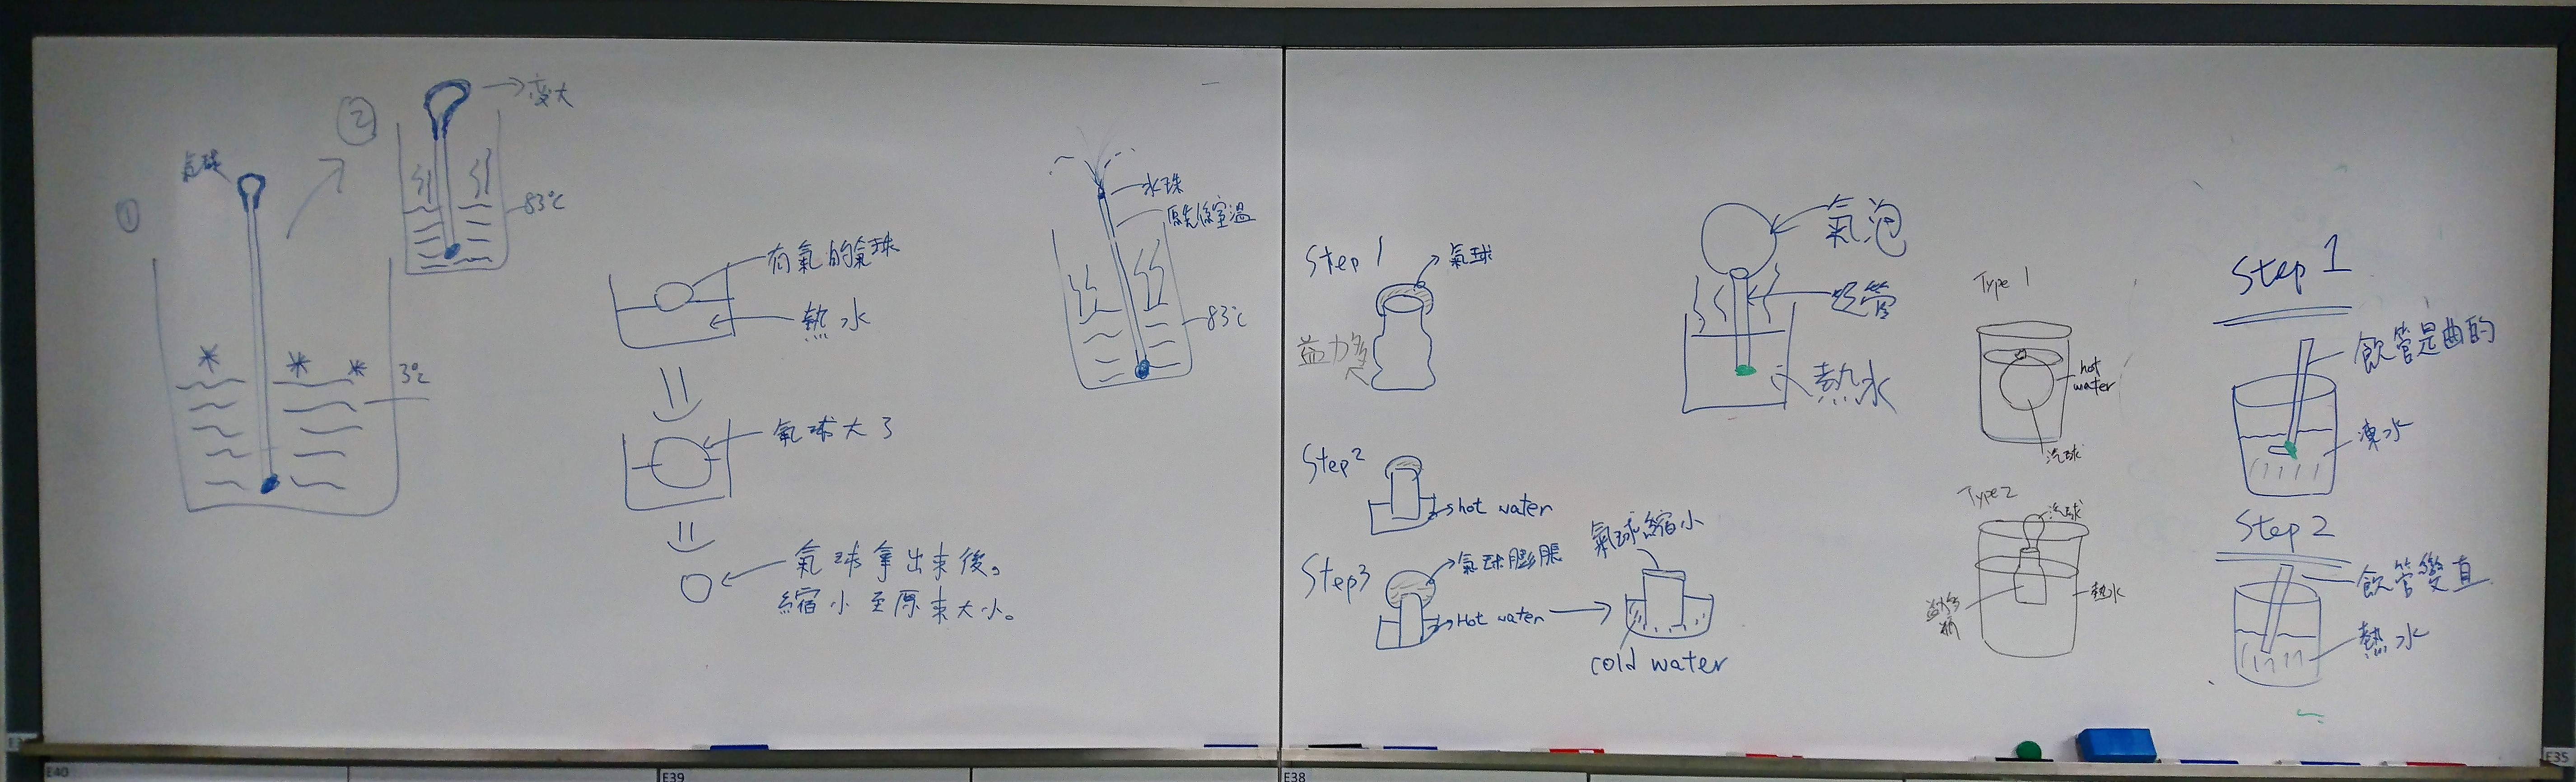 ①
氣球
3℃
②
变大
83℃
有氣的氣球
熱水
氣球大了
氣球拿出来後。
縮小至原来大小。
水珠
原先係室溫
83℃
Step 1
氣球
益力多
Step2
hot water
Step3
氣球膨脹
Hot water
氣球縮小
cold water
氣泡
熱水
Type 1
hot
water
汽球
Type2
汽球
熱水
Step 1
飲管是曲的
凍水
Step 2
飲管變直
熱水
E40
E39
E38
E35